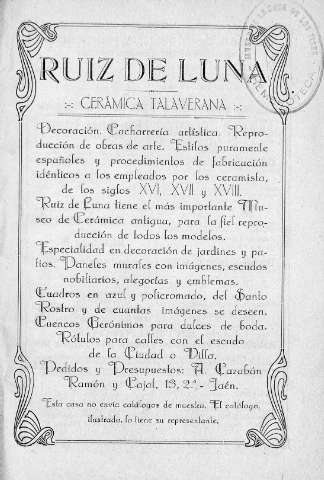 RUIZ DE LUNA
CERÁMICA TALAVERANA
Decoración. Cacharrería artística. Repro-
ducción de obras de arte. Estilos puramente
españoles y procedimientos de fabricación
idénticos a los empleados por los ceramista,
de los siglos XVI, XVII y XVIII.
Ruiz de Luna tiene el más importante Mu-
seo de Cerámica antigua, para la fiel repro-
ducción de todos los modelos.
Especialidad en decoración de jardines y pa-
tios. Paneles murales con imágenes, escudos
nobiliarios, alegorías y emblemas.
Cuadros en azul y policromado, del Santo
Rostro y de cuantas imágenes se deseen.
Cuencos Gerónimos para dulces de boda.
Rótulos para calles con el escudo
de la Ciudad o Villa.
Pedidos y Presupuestos: A. Cazabán
Ramón y Cajal, 13, 2.º - Jaén.
Esta casa no envía catálogos de muestra. El catálogo,
ilustrado, lo tiene su representante.